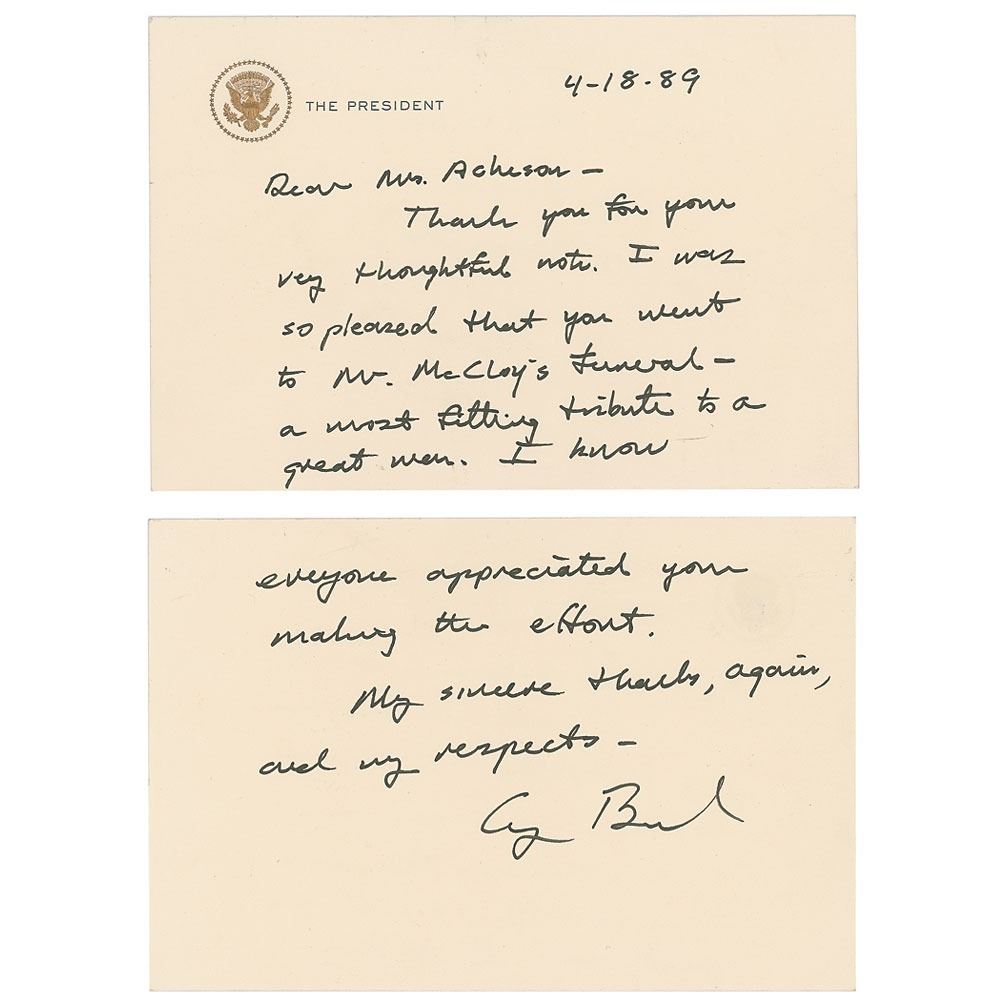 THE PRESIDENT
4-18-89
Dear Mrs. Acheson –
Thank you for your
very thoughtful note. I was
so pleased that you went
to Mr. McCloy's funeral –
a most fitting tribute to a
great man. I know
everyone appreciated your
making the effort.
My sincere thanks, again,
and my respects –
George Bush